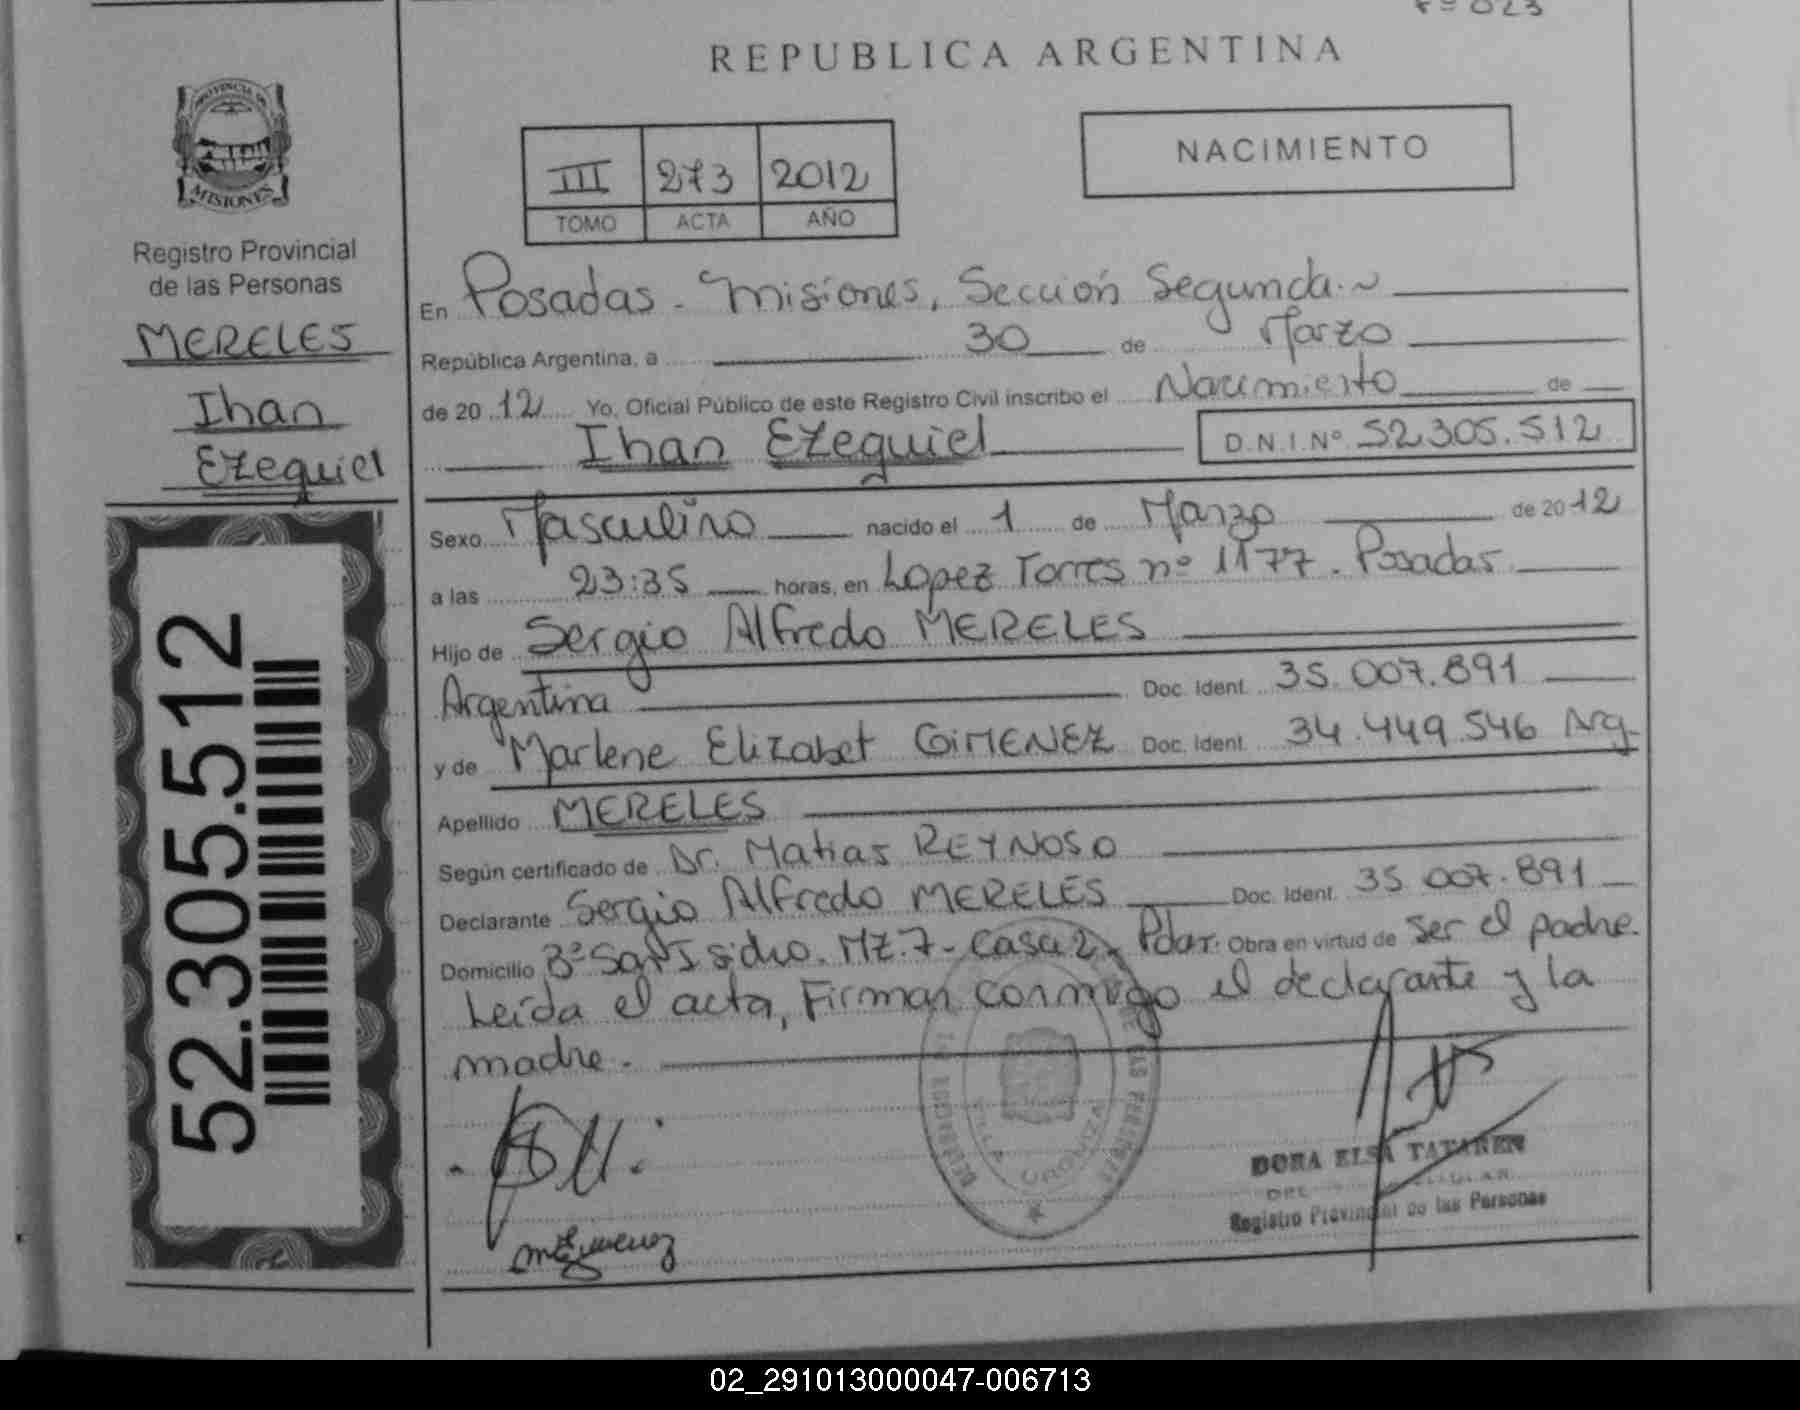 Fº 023
REPUBLICA ARGENTINA
PROVINCIA DE
MISIONES
Registro Provincial
de las Personas
MERELES
Ihan
Ezequiel
52.305.512
NACIMIENTO
III 273 2012
TOMO ACTA AÑO
En Posadas - Misiones, Sección Segunda.~
República Argentina, a 30 de Marzo
de 20 12 Yo, Oficial Público de este Registro Civil inscribo el Nacimiento de
Ihan Ezequiel D.N.I. Nº 52.305.512
Sexo Masculino nacido el 1 de Marzo de 2012
a las 23:35 horas, en Lopez Torres nº 1177. Posadas.
Hijo de Sergio Alfredo MERELES
Argentina Doc. Ident. 35.007.891
y de Marlene Elizabet GIMENEZ Doc. Ident. 34.449.546 Arg.
Apellido MERELES
Según certificado de Dr. Matias REYNOSO
Declarante Sergio Alfredo MERELES Doc. Ident. 35.007.891
Domicilio Bº San Isidro. Mz.7- Casa 2. Pdas. Obra en virtud de ser el padre.
Leída el acta, Firman conmigo el declarante y la
madre.-
VILLA URQUIZA
DORA ELSA
Registro Provincial de las Personas
02_291013000047-006713